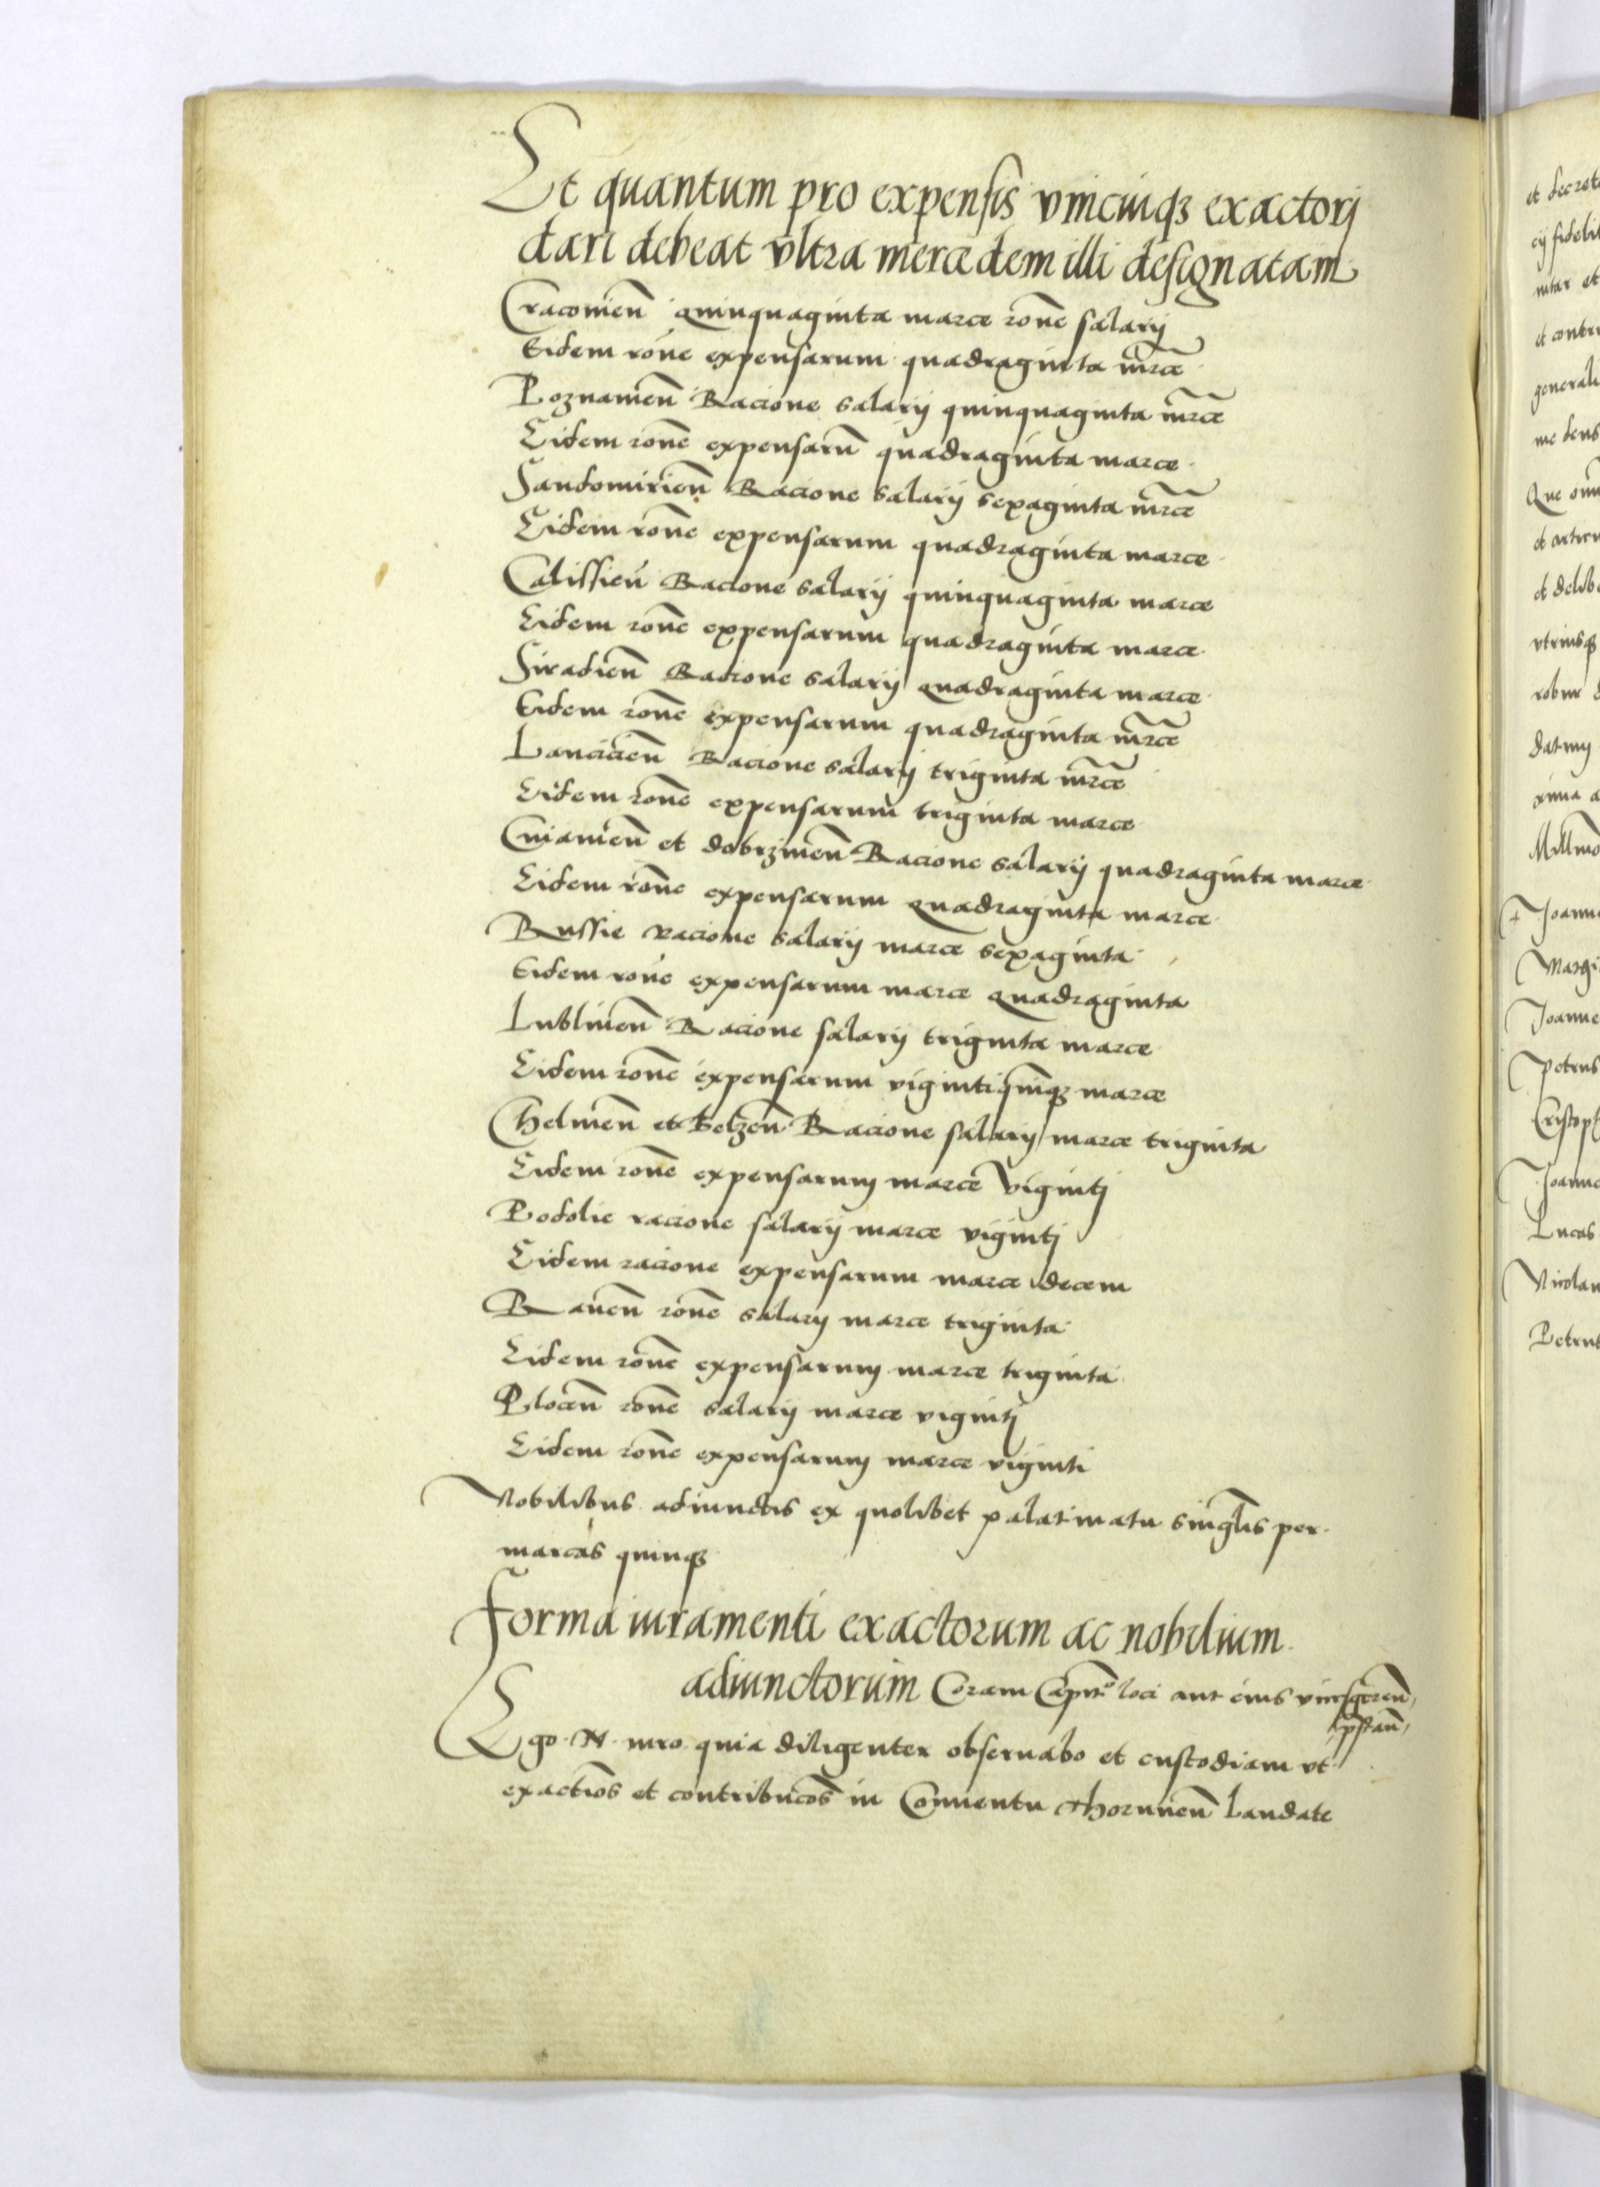 Et quantum pro expensis vnicuiqꝫ exactorj
dari debeat vltra mercedem illi designatam
Cracouien̄ quinquaginta marce rōne salarij
Eidem rōne expensarum quadraginta m̄rce
Poznanien̄ Racione salarij quinquaginta m̄rce
Eidem rōne expensarū quadraginta marce
Sandomirien̄ Racione salarij sexaginta m̄rce
Eidem rōne expensarum quadraginta marce
Calissien̄ Racione salarij quinquaginta marce
Eidem rōne expensarum quadraginta marce
Siradien̄ Racione salarij quadraginta marce
Eidem rōne expensarum quadraginta m̄rce
Lancicien̄ Racione salarij triginta m̄rce
Eidem rōne expensarum triginta marce
Cuiauien̄ et dobrzinen̄ Racione salarij quadraginta marce
Eidem rōne expensarum quadraginta marce
Russie racione salarij marce sexaginta
Eidem rōne expensarum marce quadraginta
Lublinen̄ Racione salarij triginta marce
Eidem rōne expensarum viginti quinqꝫ marce
Chelmen̄ et belzen̄ Racione salarij marce triginta
Eidem rōne expensarum marce vigintj
Podolie racione salarij marce vigintj
Eidem racione expensarum marce decem
Rauen̄ rōne salarij marce triginta
Eidem rōne expensarum marce triginta
Plocen̄ rōne salarij marce vigintj
Eidem rōne expensarum marce viginti
Nobilibus adiunctis ex quolibet palatinatu singlis per
marcas quinqꝫ
Forma iuramenti exactorum ac nobilium
adiunctorum Coram Capitō loci aut eius vicesgeren̄
p̄stan̄
Ego N iuro quia diligenter obseruabo et custodiam vt
exactiōs et contribucōs in Conuentu thorunen̄ laudate
et decret
cij fideli
nitar et
et contri
generali
me deus
Que om
et articu
et delibe
vtriusqꝫ
robur
datum
xima a
Millmo
Joanne
Joanne
Petrus
Cristoph
Joanne
Lucas
Nicolau
Petrus